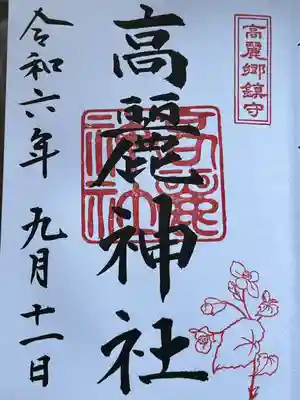 高麗郷鎮守
高麗神社
高麗神社
令和六年 九月十一日